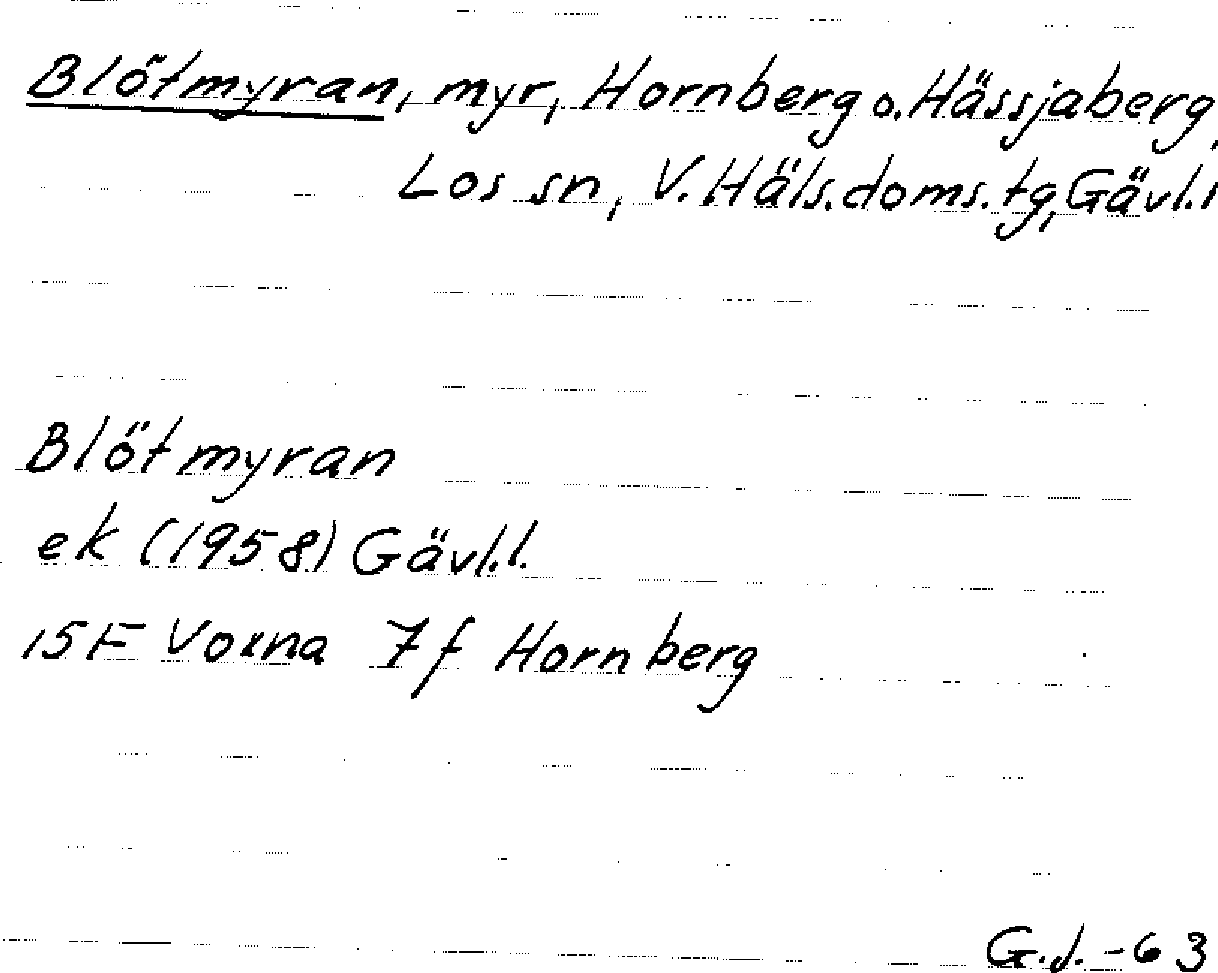 Blötmyran, myr, Hornberg o. Hässjaberg,
Los sn, V. Häls. doms. tg, Gävl. l
Blötmyran
ek (1958) Gävl. l.
15F Voxna 7f Hornberg
G.d. -63